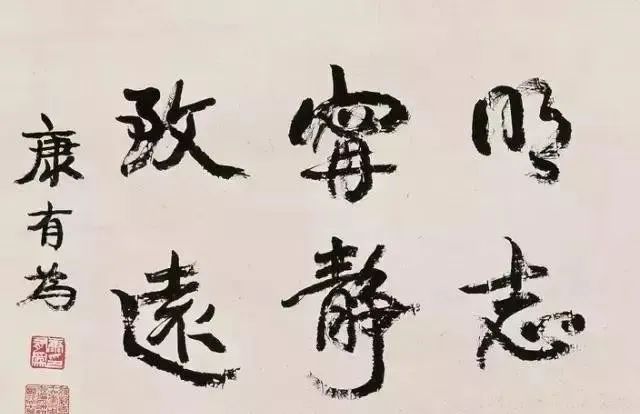 明志
寧靜
致遠
康有為